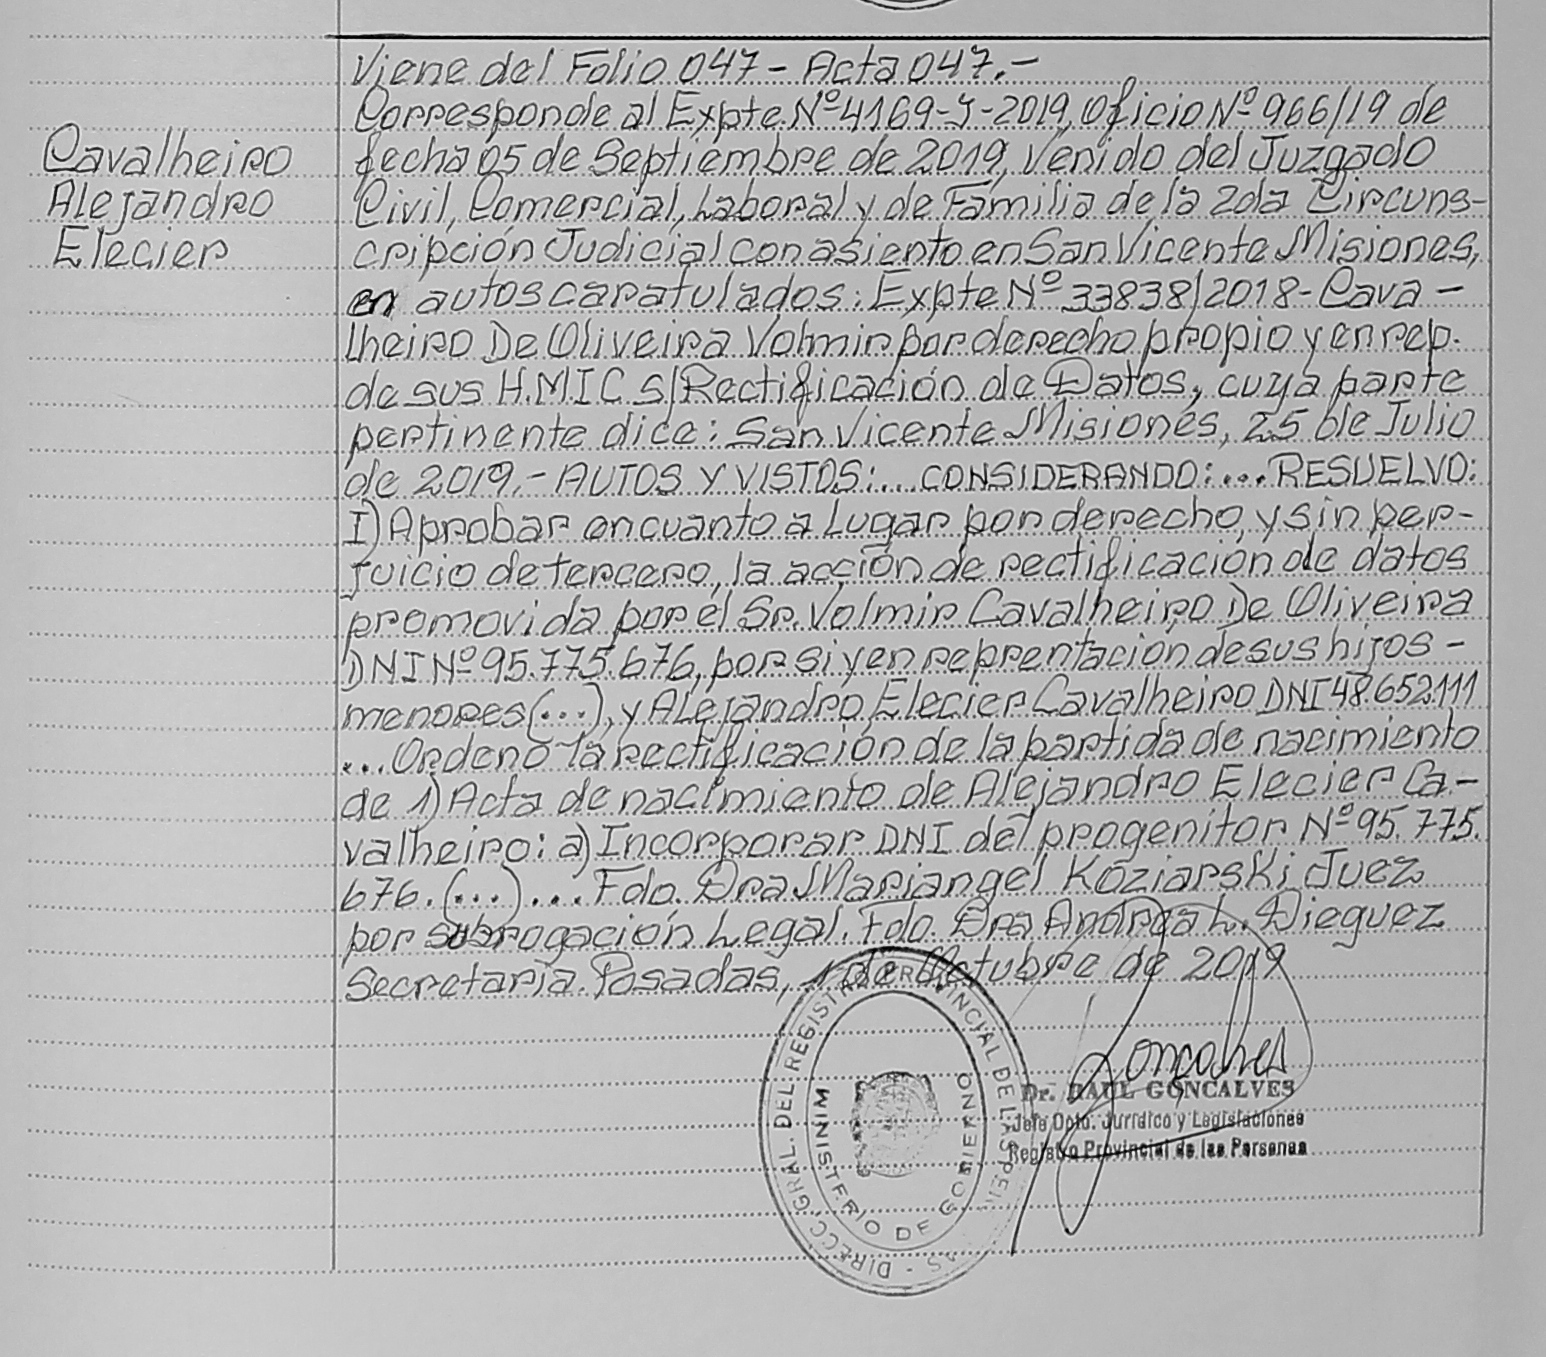 Viene del Folio 047 - Acta 047.-
Corresponde al Expte Nº 4169-J-2019, Oficio Nº 966/19 de
Cavalheiro
fecha 05 de Septiembre de 2019, Venido del Juzgado
Alejandro
Civil, Comercial, Laboral y de Familia de la 2da Circuns-
Elecier
cripción Judicial con asiento en San Vicente Misiones,
en autos caratulados: Expte Nº 33838/2018- Cava -
lheiro De Oliveira Volmir por derecho propio y en rep.
de sus H.M.I C. s/Rectificación de Datos, cuya parte
pertinente dice: San Vicente Misiones, 25 de Julio
de 2019.- AUTOS Y VISTOS:... CONSIDERANDO:... RESUELVO:
I) Aprobar en cuanto a Lugar por derecho, y sin per-
juicio de tercero, la acción de rectificación de datos
promovida por el Sr. Volmir Cavalheiro De Oliveira
DNI Nº 95.775.676, por si y en reprentación de sus hijos -
menores (...), y Alejandro Elecier Cavalheiro DNI 48.652.111
... Ordeno la rectificación de la partida de nacimiento
de 1) Acta de nacimiento de Alejandro Elecier Ca-
valheiro: a) Incorporar DNI del progenitor Nº 95.775.
676. (...) ... Fdo. Dra Mariangel Koziarski Juez
por subrogación Legal. Fdo. Dra Andrea L. Dieguez
Secretaria. Posadas, 1 de Octubre de 2019
DIRECC. GRAL. DEL REGISTRO PROVINCIAL DE LAS PER
MINISTERIO DE GOBIERNO
Goncalves
Dr. RAUL GONCALVES
Jefe Dpto. Jurídico y Legislaciones
Registro Provincial de las Personas